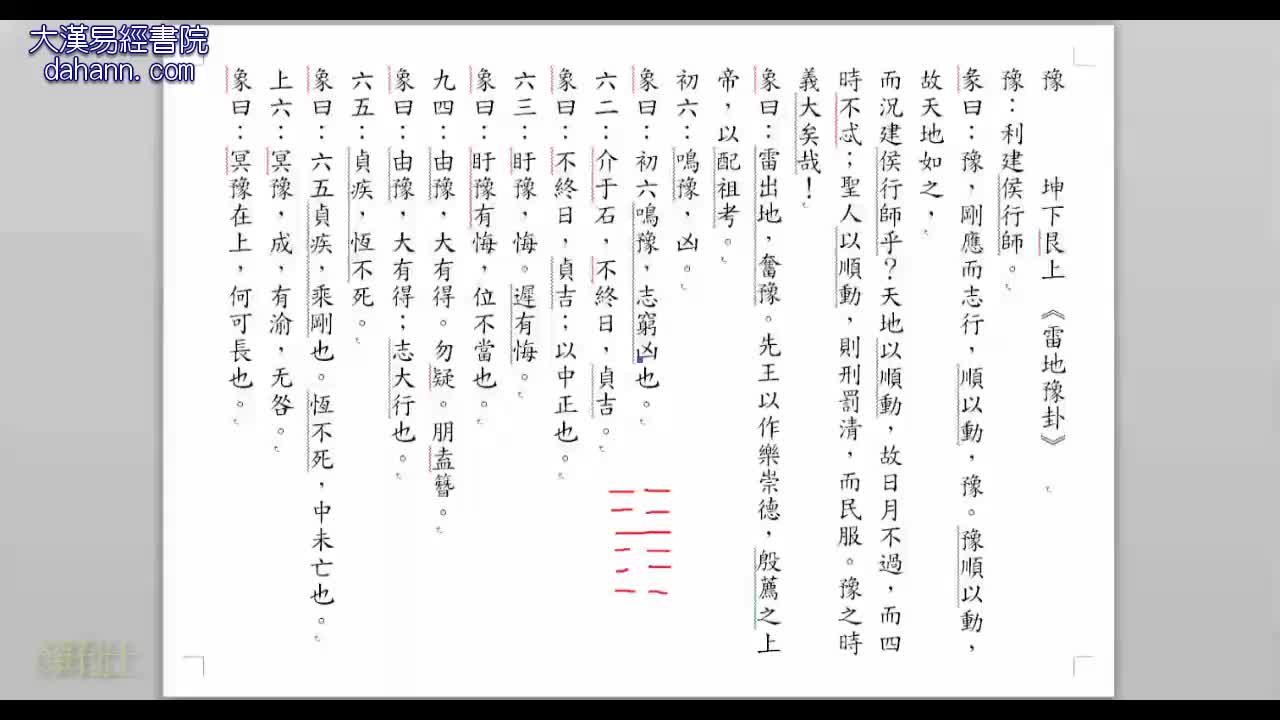 大漢易經書院
dahann. com
豫　　　坤下艮上　《雷地豫卦》
豫：利建侯行師。
彖曰：豫，剛應而志行，順以動，豫。豫順以動，
故天地如之，
而況建侯行師乎？天地以順動，故日月不過，而四
時不忒；聖人以順動，則刑罰清，而民服。豫之時
義大矣哉！
象曰：雷出地，奮豫。先王以作樂崇德，殷薦之上
帝，以配祖考。
初六：鳴豫，凶。
象曰：初六鳴豫，志窮凶也。
六二：介于石，不終日，貞吉。
象曰：不終日，貞吉；以中正也。
六三：盱豫，悔。遲有悔。
象曰：盱豫有悔，位不當也。
九四：由豫，大有得。勿疑。朋盍簪。
象曰：由豫，大有得；志大行也。
六五：貞疾，恆不死。
象曰：六五貞疾，乘剛也。恆不死，中未亡也。
上六：冥豫，成，有渝，无咎。
象曰：冥豫在上，何可長也。